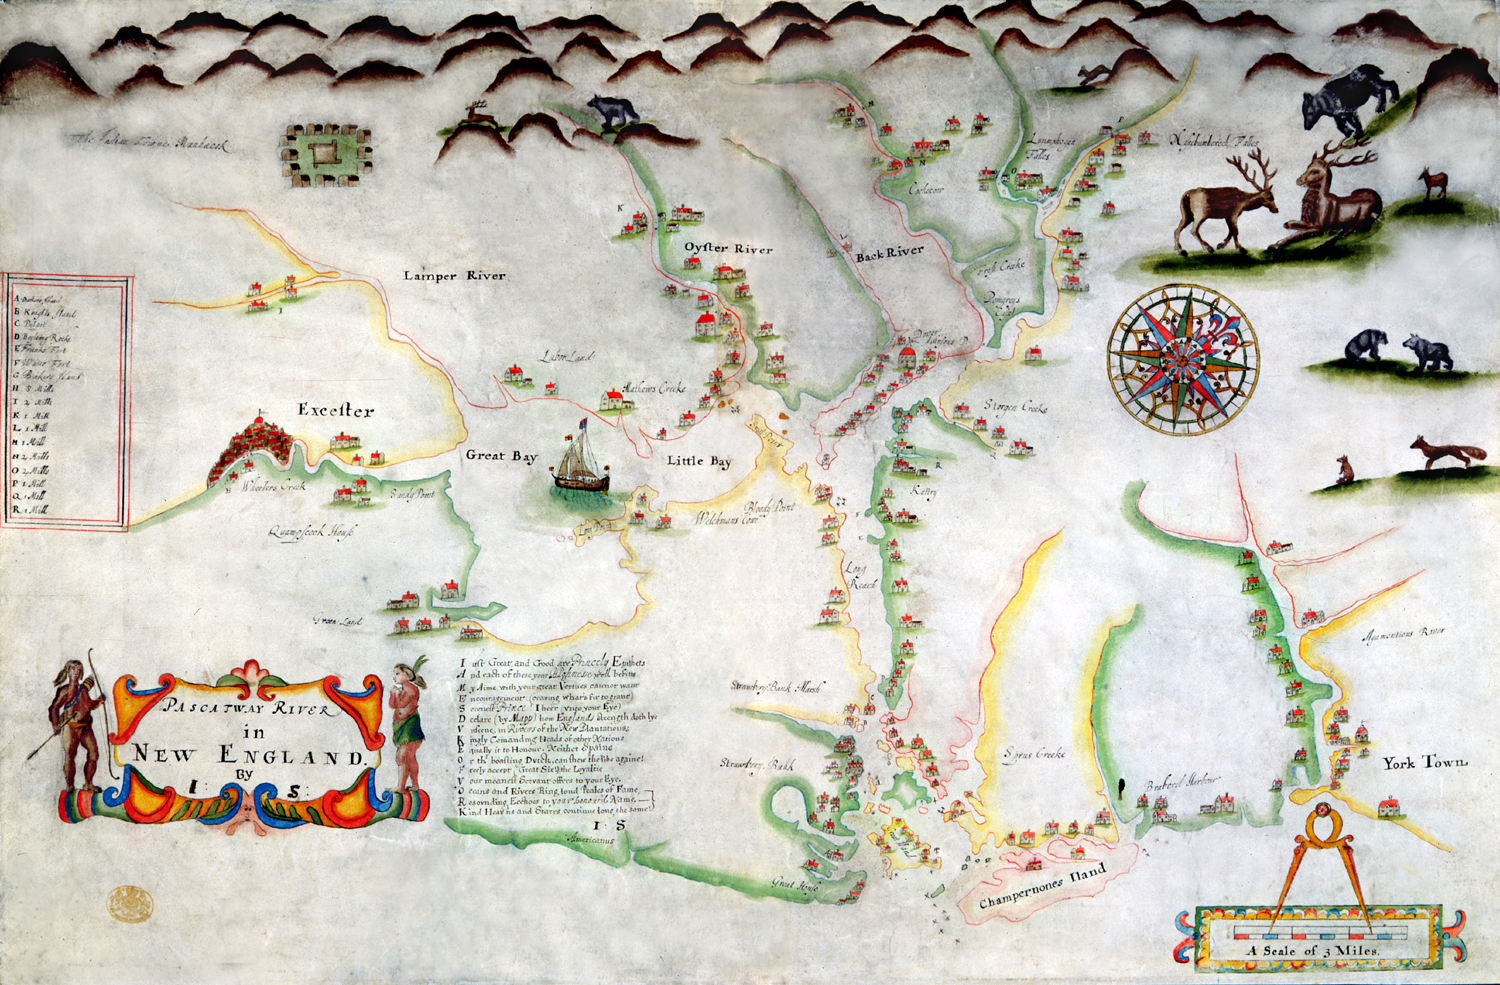 The Indian
Lamper River
Oyster River
Back River
Lampedoen
Falles
Falles
Cocheco
Fresh Creeke
Dover
Labor Land
Mathews Creeke
Sturgen Creeke
Excester
Great Bay
Little Bay
Wheelers Creek
Sandy Point
Quampscook House
Bloody Point
Welchmans Cove
Kettry
Long
Reach
Green Land
A
B Knights Iland
C
D Boyling Rocke
E Franks Fort
F Fort
G Iland
H 3 Mills
I 2 Mills
K 1 Mill
L 1 Mill
M 1 Mill
N 2 Mills
O 2 Mills
P 1 Mill
Q 1 Mill
R 1 Mill
PASCATWAY RIVER
in
NEW ENGLAND.
By
I : S :
Iust Great and Good are Princely Epithets
And each of these your Highness well befits
My Aime with your great Vertues cannot want
Encouragement (craving what's fit to grant)
Serenest Prince I heer (unto your Eye)
Declare (by Mapp) how Englands strength doth lye
Vnseene, in Rivers of the New Plantations
Kingly Comanding Heads of other Nations
Equally it to Honour. Neither Spaine
Or th' boasting Dutch, can shew the like againe
Freely accept (Great Sir) the Loyaltie
Your meanest Servant offers to your Eye,
Oceans and Rivers Ring loud Peales of Fame,
Resounding Ecchoes to your honoured Name.
Kind Heav'ns and Starrs continue long the same
I S
Americanus
Strawbery Bank Marsh
Strawbery Bank
Great House
Great Iland
Sprus Creeke
Champernones Iland
Braford Harbour
Agamentious River
York Town
A Scale of 3 Miles.